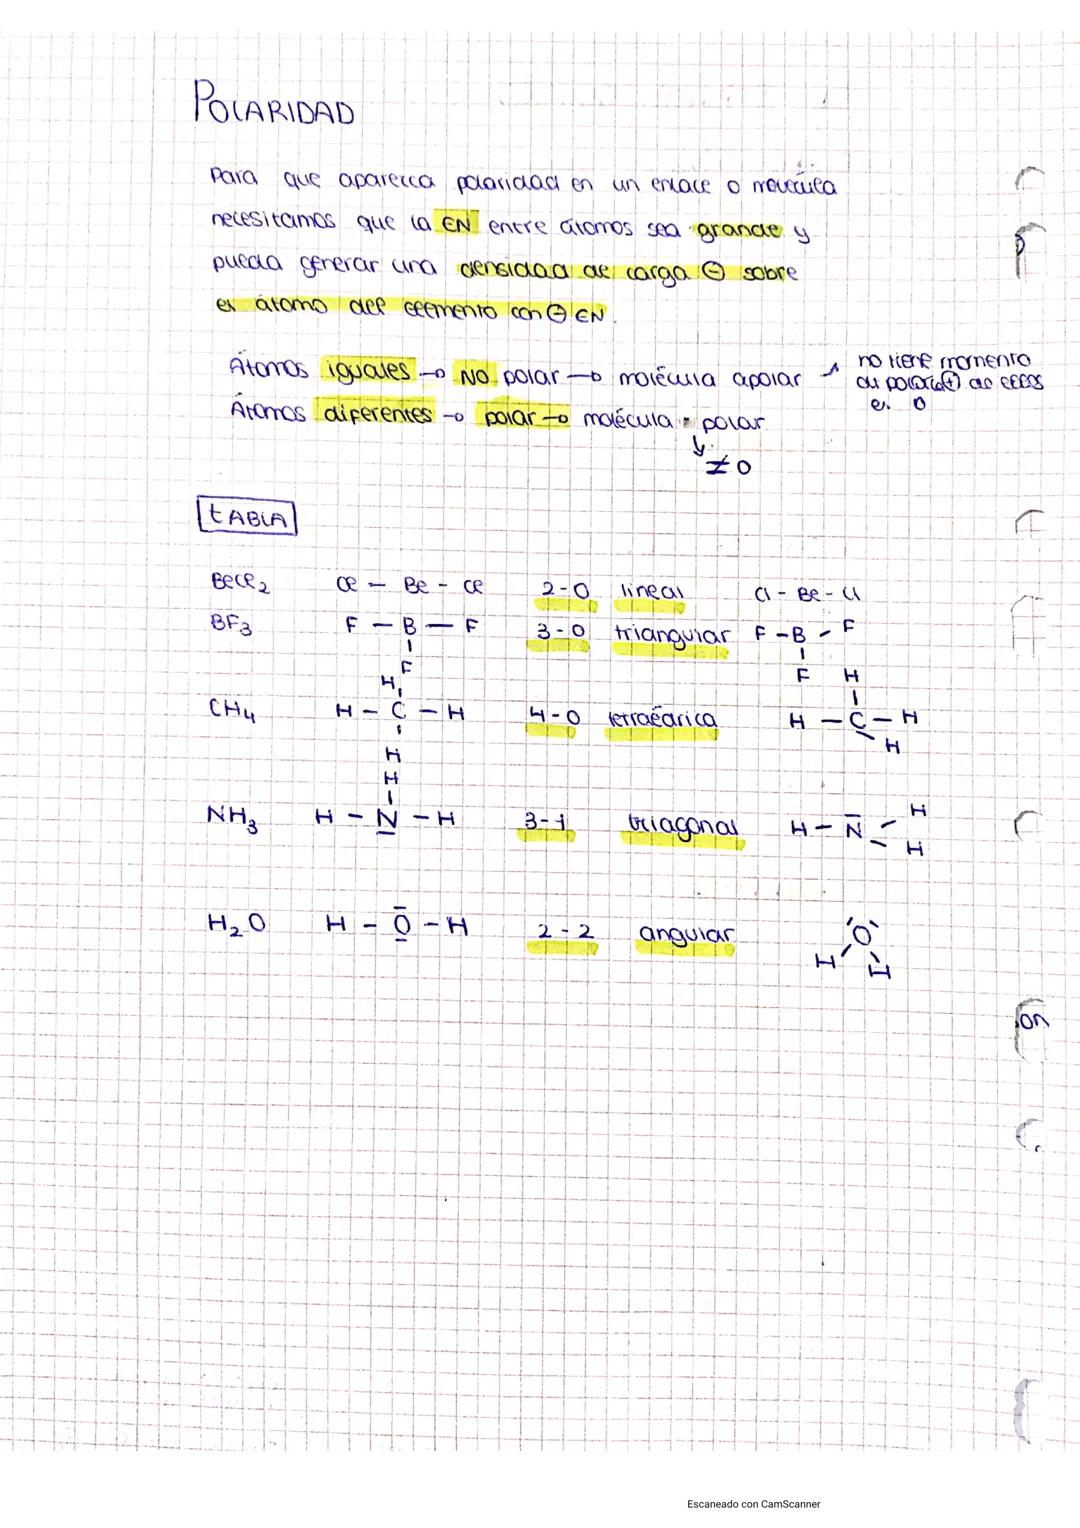 POLARIDAD
Para que aparezca polaridad en un enlace o molécula
necesitamos que la EN entre átomos sea grande y
pueda generar una densidad de carga ⊖ sobre
el átomo del elemento con ⊕ EN.
Átomos iguales → NO polar → molécula apolar → no tiene momento
Átomos diferentes → polar → molécula polar
≠ 0
TABLA
BeCl2 Cl - Be - Cl 2-0 lineal Cl - Be - Cl
BF3 F - B - F 3-0 triangular F - B - F
F F H
H
CH4 H - C - H 4-0 tetraédrica H - C - H
H H
H
NH3 H - N - H 3-1 triagonal H - N - H
H
H2O H - O - H 2-2 angular O
H H
on
Escaneado con CamScanner